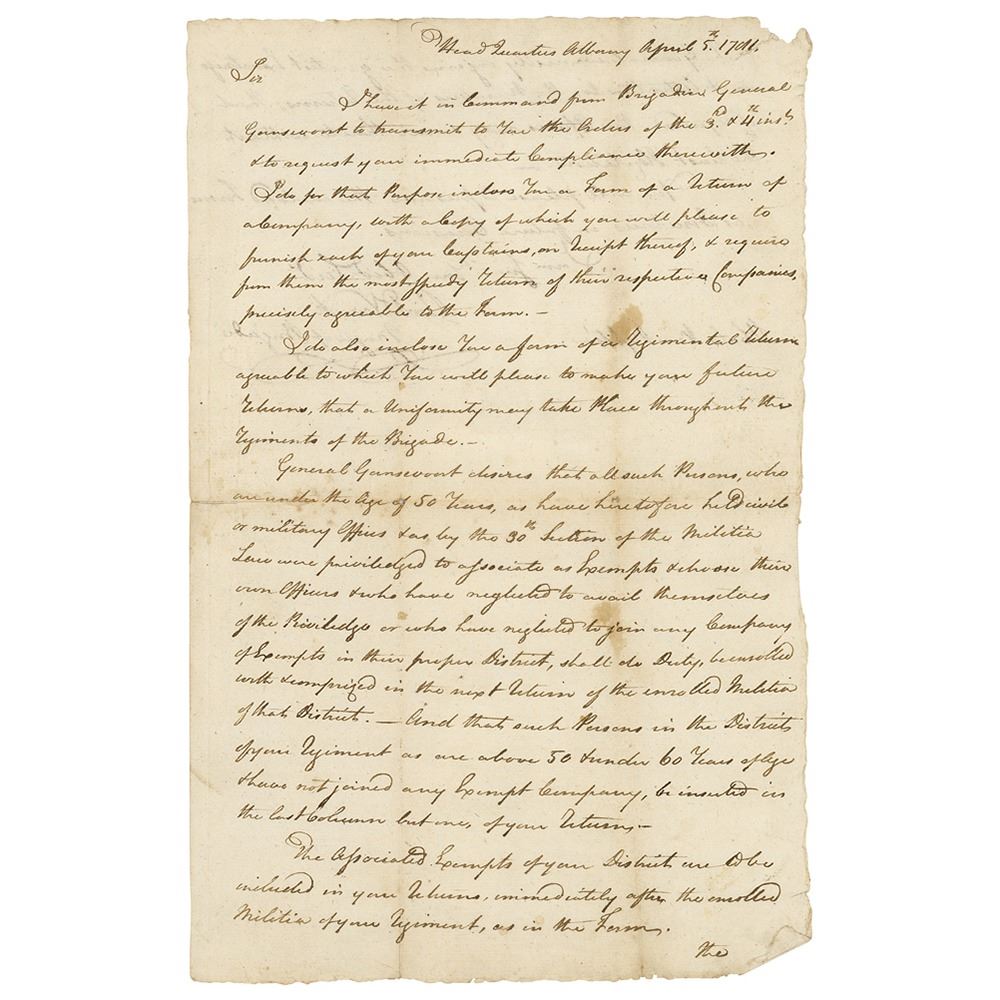 Head Quarters Albany April 5th. 1781.
Sir
I have it in Command from Brigadier General
Gansevoort to transmit to You the Orders of the 3rd. & 4th inst.
& to request your immediate Compliance therewith.
I do for that Purpose inclose You a Form of a Return of
a Company, with a Copy of which you will please to
furnish each of your Captains, on Receipt thereof, & require
from them the most speedy Return of their respective Companies,
precisely agreeable to the Form. —
I do also inclose You a form of a Regimental Return
agreable to which You will please to make your future
Returns, that a Uniformity may take Place throughout the
Regiments of the Brigade. —
General Gansevoort desires that all such Persons, who
are under the Age of 50 Years, as have heretofore held civil
or military Offices & as by the 30th Section of the Militia
Law were priviledged to associate as Exempts & choose their
own Officers & who have neglected to avail themselves
of the Priviledge or who have neglected to join any Company
of Exempts in their proper District, shall do Duty, be enrolled
with & comprized in the next Return of the enrolled Militia
of that District. — And that such Persons in the Districts
of your Regiment as are above 50 & under 60 Years of Age
& have not joined any Exempt Company, be inserted in
the last Column but one, of your Return. —
The Associated Exempts of your District are to be
included in your Returns, immediately after the enrolled
Militia of your Regiment, as in the Form.
The